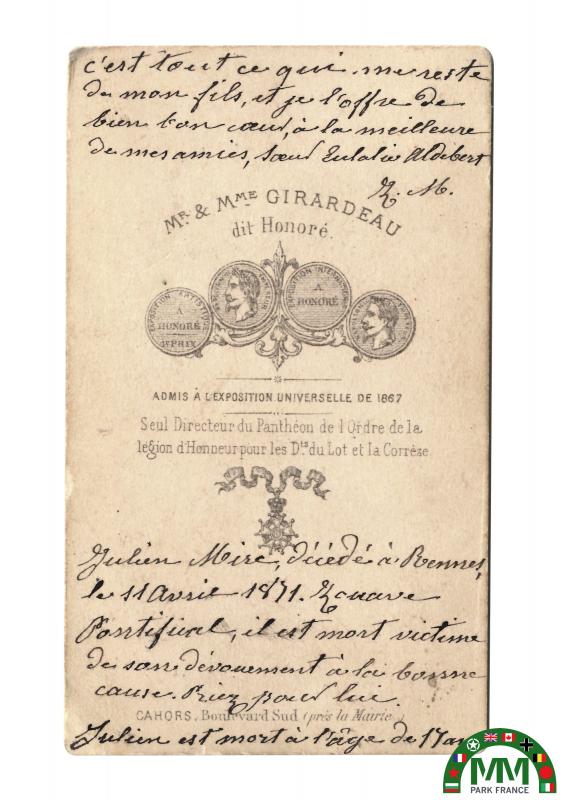 c'est tout ce qui me reste
de mon fils, et je l'offre de
bien bon cœur, à la meilleure
de mes amies, Sœur Eulalie Aldebert
Z. M.
MR. & MME GIRARDEAU
dit Honoré.
EXPOSITION ARTISTIQUE
A
HONORÉ
1er PRIX
A
HONORÉ
ADMIS À L'EXPOSITION UNIVERSELLE DE 1867
Seul Directeur du Panthéon de l'Ordre de la
legion d'Honneur pour les Dts du Lot et la Corrèze
Julien Mirc, décédé à Rennes,
le 11 Avril 1871. Zouave
Pontifical, il est mort victime
de son dévouement à la bonne
cause. Priez pour lui.
CAHORS, Boulevard Sud (près la Mairie)
Julien est mort à l'âge de 17 an
MM
PARK FRANCE